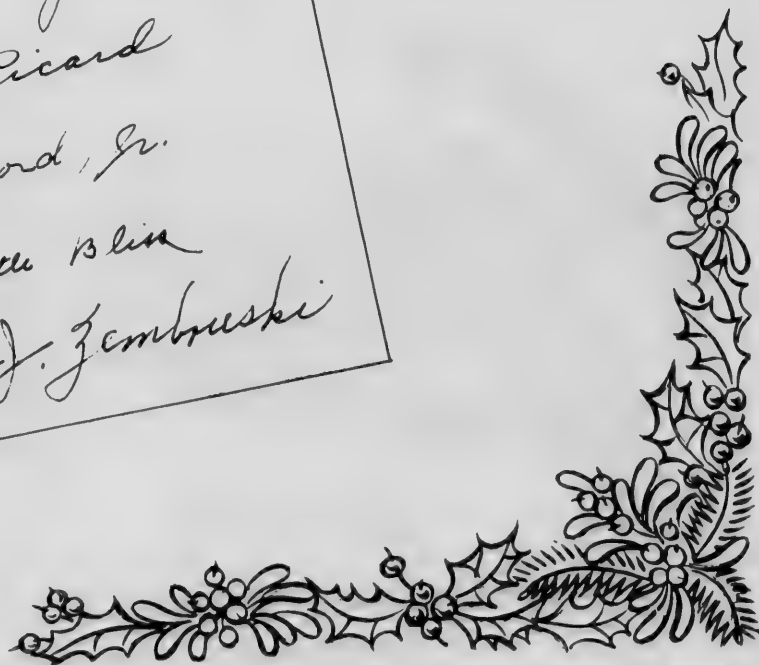 Picard
ord, Jr.
Bliss
J. Zembruski